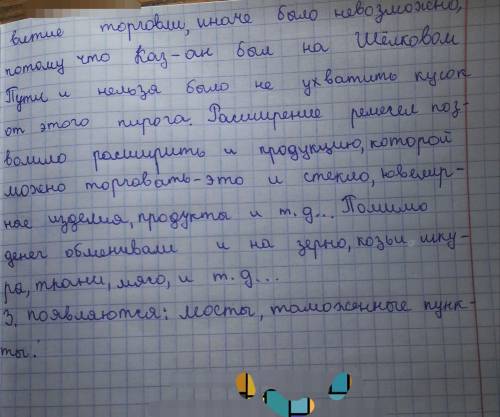 витие торговли, иначе было невозможно,
потому что Каз-ан был на Шёлковом
Пути и нельзя было не ухватить кусок
от этого пирога. Расширение ремесел поз-
волило расширить и продукцию, которой
можно торговать-это и стекло, ювелир-
ные изделия, продукты и т.д... Помимо
денег обменивали и на зерно, козьи шку-
ра, ткани, мясо, и т.д...
3. появляются: мосты, таможенные пунк-
ты.